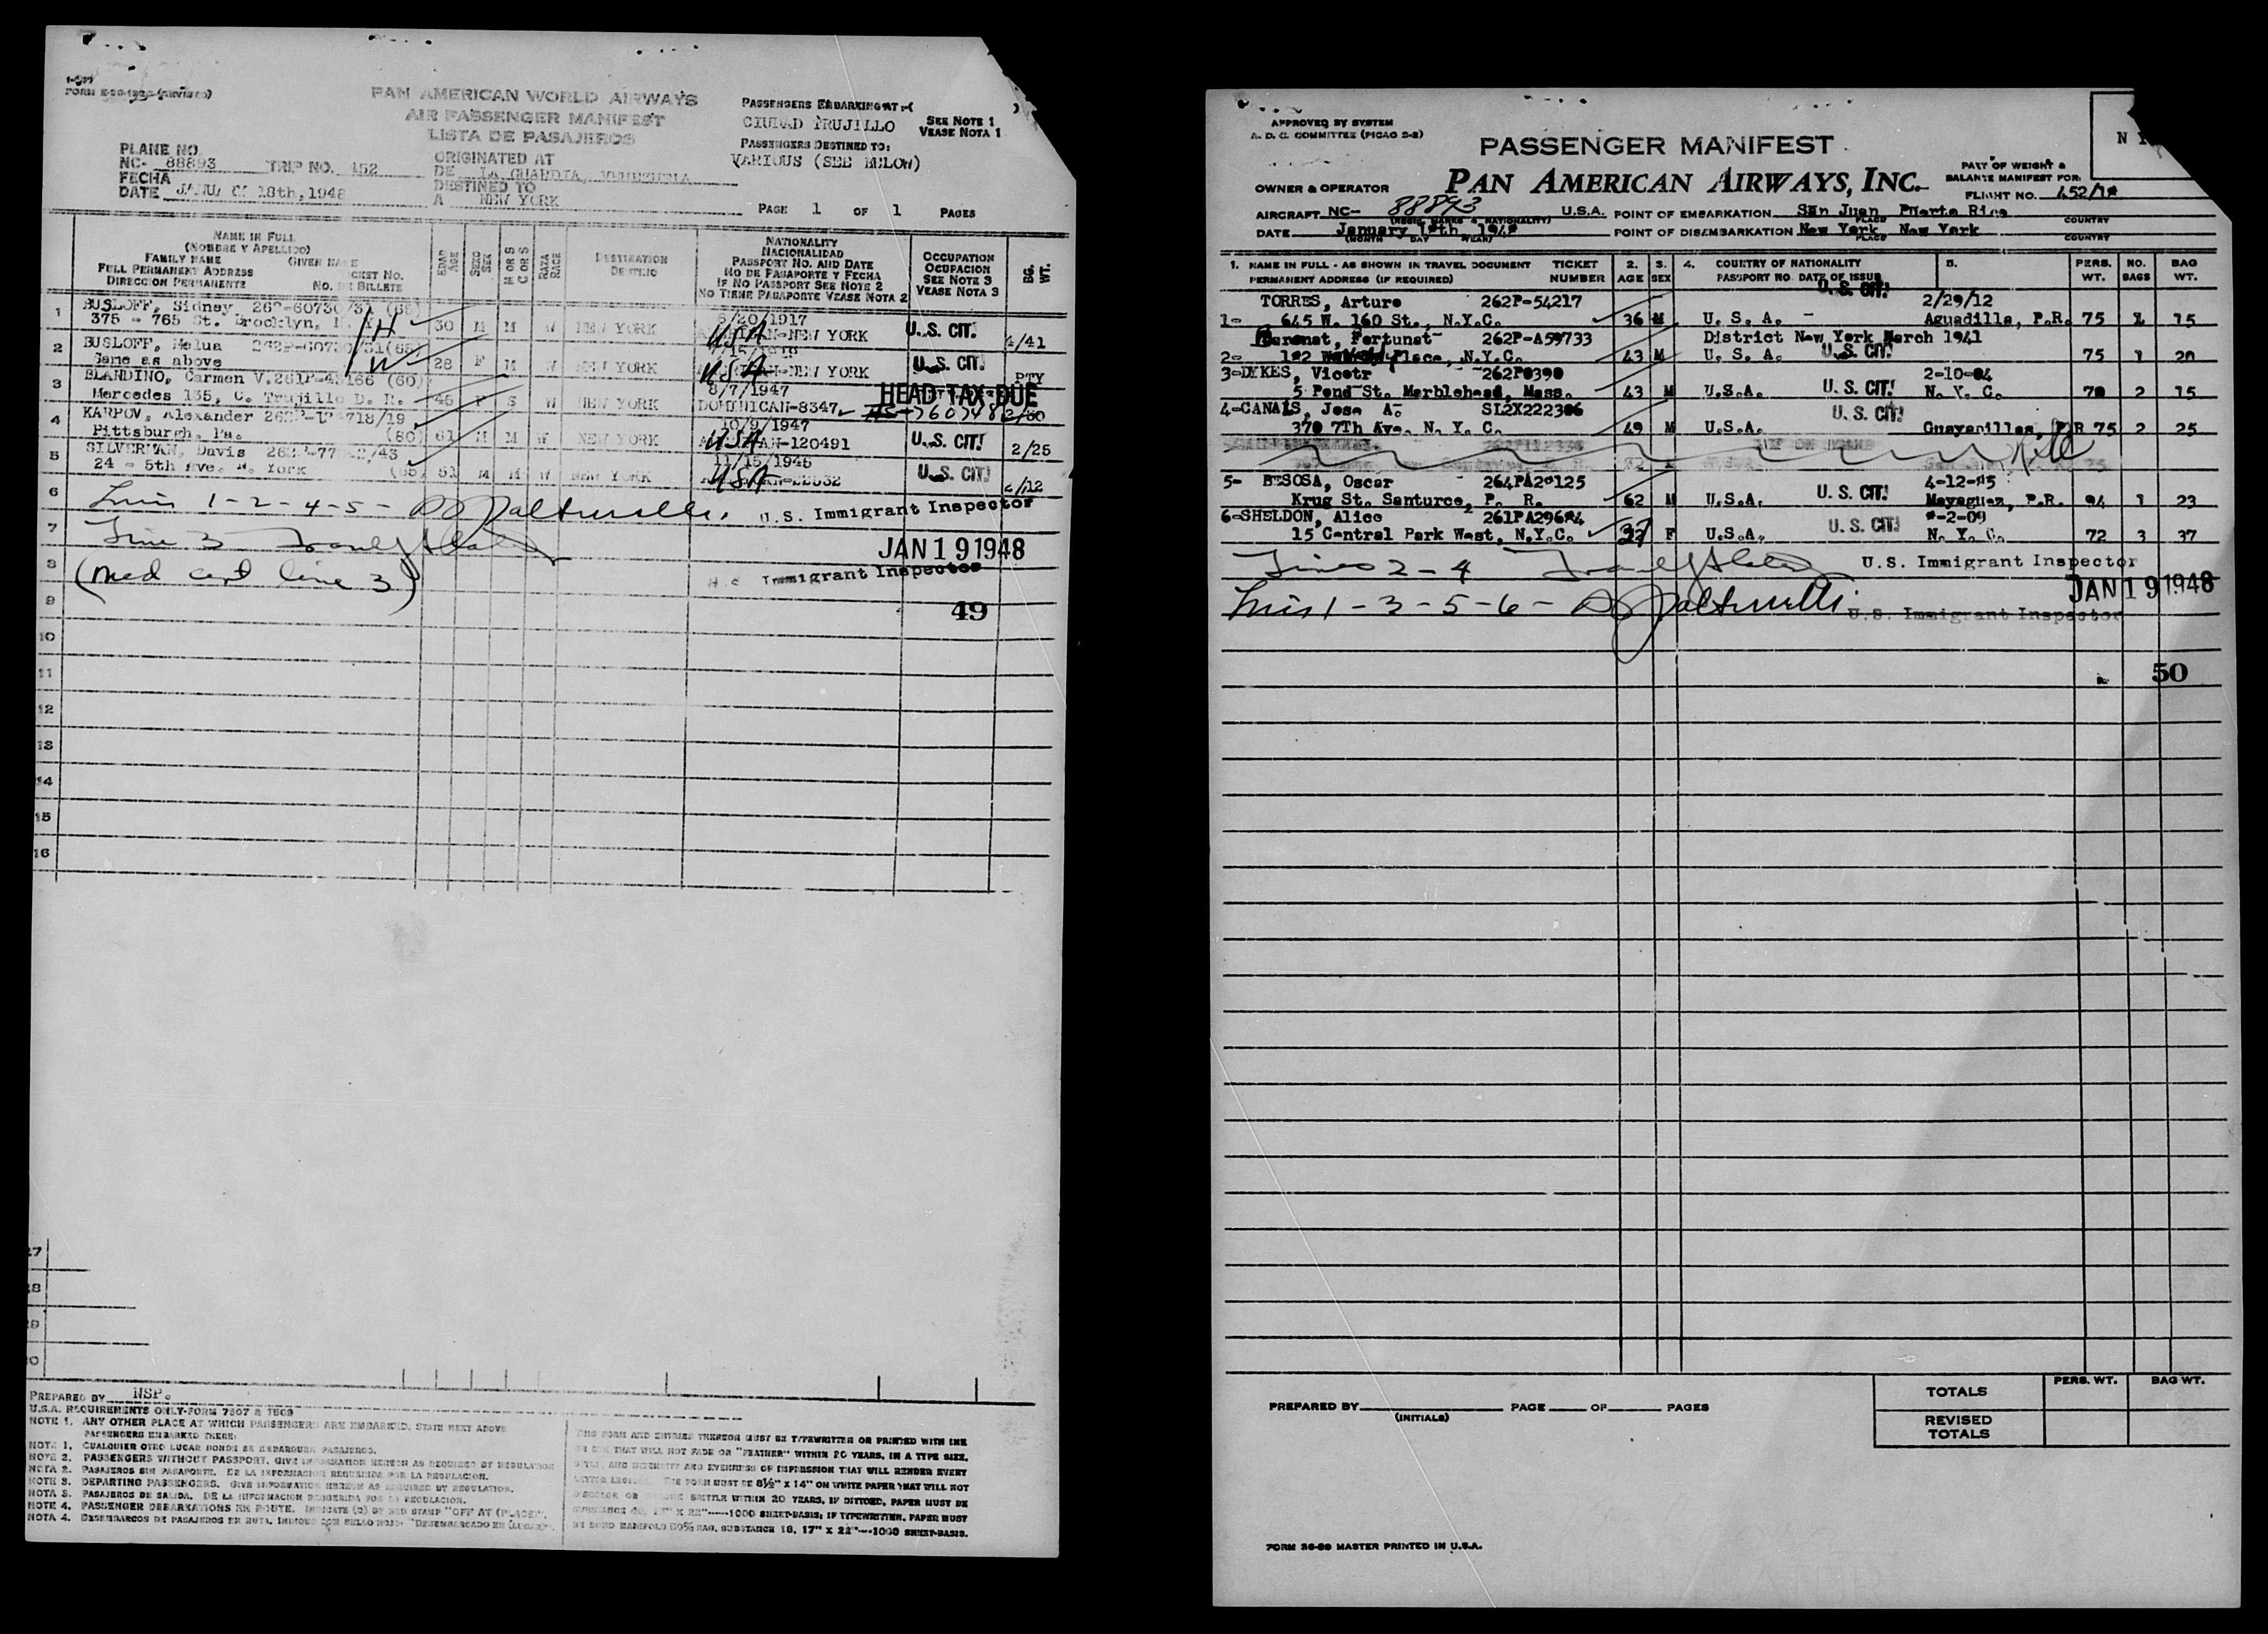 FORM
PAN AMERICAN WORLD AIRWAYS
AIR PASSENGER MANIFEST
LISTA DE PASAJEROS
PASSENGERS EMBARKING AT:-( )
CIUDAD TRUJILLO
SEE NOTE 1
VEASE NOTA 1
PASSENGERS DESTINED TO:
VARIOUS (SEE BELOW)
PLANE NO.
NC- 88893 TRIP NO. 452
FECHA
DATE 18th, 1948
ORIGINATED AT
DE LA GUARDIA, VENEZUELA
DESTINED TO
A NEW YORK
PAGE 1 OF 1 PAGES
NAME IN FULL
(NOMBRE Y APELLIDO)
FAMILY NAME GIVEN NAME
FULL PERMANENT ADDRESS TICKET NO.
DIRECCION PERMANENTE NO. DE BILLETE
EDAD AGE
SEXO SEX
M OR S
C OR S
RAZA RACE
DESTINATION
DESTINO
NATIONALITY
NACIONALIDAD
PASSPORT NO. AND DATE
NO DE PASAPORTE Y FECHA
IF NO PASSPORT SEE NOTE 2
NO TIENE PASAPORTE VEASE NOTA 2
OCCUPATION
OCUPACION
SEE NOTE 3
VEASE NOTA 3
BG. WT.
1 BUSLOFF, Sidney 262P-60730/31 (65) H
375 - 765 St. Brooklyn, N. Y. 30 M M W NEW YORK 6/20/1917 USA NEW YORK U.S. CIT. 4/41
2 BUSLOFF, Melua (65) W
Same as above 28 F M W NEW YORK USA NEW YORK U.S. CIT! PTY
3 BLANDINO, Carmen V. 261P-43166 (60) 8/7/1947 HEAD TAX DUE
Mercedes 135, C. Trujillo D. R. 45 F S W NEW YORK DOMINICAN-8347
4 KARPOV, Alexander 10/9/1947
Pittsburgh, Pa. (80) 61 M M W NEW YORK USA -120491 U.S. CIT! 2/25
5 SILVERMAN, Davis 11/15/1945
24 - 5th Ave. N. York (65) 51 M M W NEW YORK USA U.S. CIT! /12
6 Lines 1-2-4-5- U.S. Immigrant Inspector
7 Line 3
JAN 19 1948
8 (Med cert line 3) Immigrant Inspector
9 49
10
11
12
13
14
15
16
27
28
29
30
PREPARED BY NSP.
U.S.A. REQUIREMENTS ONLY-FORM 7507 & 7509
NOTE 1. ANY OTHER PLACE AT WHICH PASSENGERS ARE EMBARKED, STATE NEXT ABOVE
PASSENGERS EMBARKED THERE:
NOTA 1. CUALQUIER OTRO LUGAR DONDE SE EMBARQUEN PASAJEROS.
NOTE 2. PASSENGERS WITHOUT PASSPORT. GIVE INFORMATION HEREON AS REQUIRED BY REGULATION
NOTA 2. PASAJEROS SIN PASAPORTE. DE LA INFORMACION REQUERIDA POR LA REGULACION.
NOTE 3. DEPARTING PASSENGERS. GIVE INFORMATION HEREON AS REQUIRED BY REGULATION.
NOTA 3. PASAJEROS DE SALIDA. DE LA INFORMACION REQUERIDA POR LA REGULACION.
NOTE 4. PASSENGER DEBARKATIONS EN ROUTE. INDICATE (C) BY RED STAMP "OFF AT (PLACE)".
NOTA 4. DESEMBARCOS DE PASAJEROS EN RUTA. INDIQUE CON SELLO ROJO "DESEMBARCADO EN (LUGAR)".
THIS FORM AND ENTRIES THEREON MUST BE TYPEWRITTEN OR PRINTED WITH INK
OR DYE THAT WILL NOT FADE OR "FEATHER" WITHIN 20 YEARS, IN A TYPE SIZE,
STYLE, AND INTENSITY AND EVENNESS OF IMPRESSION THAT WILL RENDER EVERY
LETTER LEGIBLE. THE FORM MUST BE 8½" X 14" ON WHITE PAPER THAT WILL NOT
DISCOLOR OR BECOME BRITTLE WITHIN 20 YEARS. IF DITTOED, PAPER MUST BE
SUBSTANCE 40, 17" X 22"-----1000 SHEET-BASIS; IF TYPEWRITTEN, PAPER MUST
BE BOND MANIFOLD 50% RAG, SUBSTANCE 18, 17" X 22"---1000 SHEET-BASIS.
APPROVED BY SYSTEM
A. D. C. COMMITTEE (PICAO 2-2)
PASSENGER MANIFEST
N Y
PART OF WEIGHT &
BALANCE MANIFEST FOR:
OWNER & OPERATOR PAN AMERICAN AIRWAYS, INC. FLIGHT NO. 452/18
AIRCRAFT NC- 88893 U.S.A. POINT OF EMBARKATION San Juan Puerto Rico
(REGIS. MARKS & NATIONALITY) PLACE COUNTRY
DATE January 18th, 1948 POINT OF DISEMBARKATION New York New York
(MONTH DAY YEAR) PLACE COUNTRY
1. NAME IN FULL - AS SHOWN IN TRAVEL DOCUMENT TICKET 2. 3. 4. COUNTRY OF NATIONALITY 5. PERS. NO. BAG
PERMANENT ADDRESS (IF REQUIRED) NUMBER AGE SEX PASSPORT NO. DATE OF ISSUE WT. BAGS WT.
TORRES, Arturo 262P-54217 U.S. CIT! 2/29/12
1- 645 W. 160 St., N.Y.C. 36 M U. S. A. - Aguadilla, P.R. 75 1 15
Fortunat 262P-A59733 District New York March 1941
2- Place, N.Y.C. 43 M U. S. A. U.S. CIT! 75 1 20
3-DYKES, Vicotr 262P0390 2-10-04
5 Pond St. Marblehead, Mass. 43 M U.S.A. U.S. CIT! N. Y. C. 70 2 15
4-CANALS, Jose A. SL2X222306 U.S. CIT!
370 7Th Ave. N. Y. C. 49 M U.S.A. Guayanillas, P R 75 2 25
5- BESOSA, Oscar 264PA20125 4-12-85
Krug St. Santurce, P. R. 62 M U.S.A. U.S. CIT! Mayaguez, P.R. 94 1 23
6-SHELDON, Alice 261PA29684 -2-09
15 Central Park West, N.Y.C. F U.S.A. U.S. CIT! N. Y. C. 72 3 37
Lines 2-4 U.S. Immigrant Inspector
JAN 19 1948
Lines 1-3-5-6- U.S. Immigrant Inspector
50
TOTALS PERS. WT. BAG WT.
REVISED
TOTALS
PREPARED BY PAGE OF PAGES
(INITIALS)
FORM 36-89 MASTER PRINTED IN U.S.A.